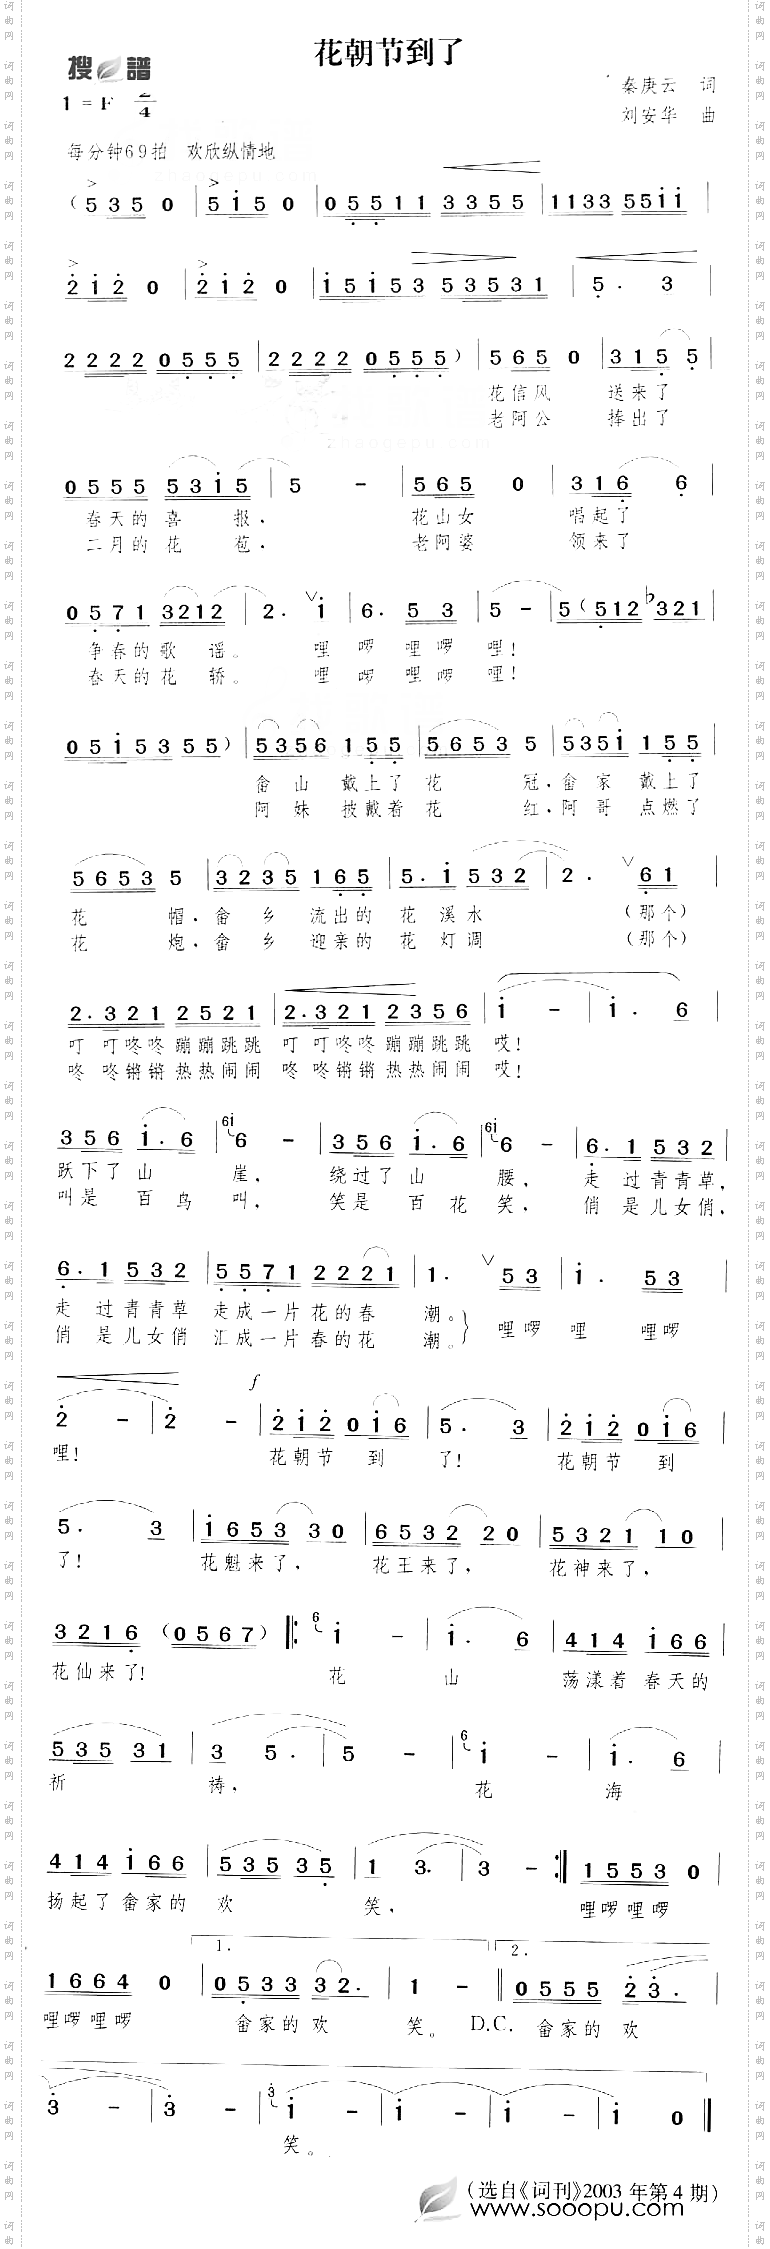 花朝节到了
搜谱
秦庚云 词
1 = F 2/4
刘安华 曲
每分钟69拍 欢欣纵情地
( 5 3 5 0 | 5 i 5 0 | 0 5 5 1 1 3 3 5 5 | 1 1 3 3 5 5 i i |
2 i 2 0 | 2 i 2 0 | i 5 i 5 3 5 3 5 3 1 | 5 . 3 |
2 2 2 2 0 5 5 5 | 2 2 2 2 0 5 5 5 ) | 5 6 5 0 | 3 1 5 5 |
花信风 送来了
老阿公 捧出了
0 5 5 5 5 3 i 5 | 5 - | 5 6 5 0 | 3 1 6 6 |
春天的喜 报, 花山女 唱起了
二月的花 苞, 老阿婆 领来了
0 5 7 1 3 2 1 2 | 2 . i | 6 . 5 3 | 5 - | 5 ( 5 1 2 b3 2 1 |
争春的歌 谣。 哩 啰 哩啰 哩!
春天的花 轿。 哩 啰 哩啰 哩!
0 5 i 5 3 5 5 ) | 5 3 5 6 1 5 5 | 5 6 5 3 5 | 5 3 5 i 1 5 5 |
畲 山 戴上了 花 冠,畲 家 戴上了
阿 妹 披戴着 花 红,阿 哥 点燃了
5 6 5 3 5 | 3 2 3 5 1 6 5 | 5 . i 5 3 2 | 2 . 6 1 |
花 帽,畲 乡 流出的 花 溪水 (那个)
花 炮,畲 乡 迎亲的 花 灯调 (那个)
2 . 3 2 1 2 5 2 1 | 2 . 3 2 1 2 3 5 6 | i - | i . 6 |
叮 叮咚咚蹦蹦跳跳 叮 叮咚咚蹦蹦跳跳 哎!
咚 咚锵锵热热闹闹 咚 咚锵锵热热闹闹 哎!
3 5 6 i . 6 | 6i 6 - | 3 5 6 i . 6 | 6i 6 - | 6 . 1 5 3 2 |
跃下了山 崖, 绕过了山 腰, 走 过青青草,
叫是 百鸟 叫, 笑是 百花 笑, 俏 是儿女俏,
6 . 1 5 3 2 | 5 5 7 1 2 2 2 1 | 1 . 5 3 | i . 5 3 |
走 过青青草 走成一片花的春 潮。 哩啰 哩 哩啰
俏 是儿女俏 汇成一片春的花 潮。
f
2 - | 2 - | 2 i 2 0 i 6 | 5 . 3 | 2 i 2 0 i 6 |
哩! 花朝节 到 了! 花朝节 到
5 . 3 | i 6 5 3 3 0 | 6 5 3 2 2 0 | 5 3 2 1 1 0 |
了! 花魁来了, 花王来了, 花神来了,
3 2 1 6 ( 0 5 6 7 ) ‖: 6 i - | i . 6 | 4 1 4 i 6 6 |
花仙来了! 花 山 荡漾着 春天的
5 3 5 3 1 | 3 5 . | 5 - | 6 i - | i . 6 |
祈 祷, 花 海
4 1 4 i 6 6 | 5 3 5 3 5 | 1 3 . | 3 - :‖ 1 5 5 3 0 |
扬起了畲家的 欢 笑, 哩啰哩啰
1. 2.
1 6 6 4 0 | 0 5 3 3 3 2 . | 1 - ‖ 0 5 5 5 2 3 . |
哩啰哩啰 畲家的欢 笑。 D.C. 畲家的 欢
3 - | 3 - | 3 i - | i - | i - | i 0 ‖
笑。
(选自《词刊》2003 年第 4 期)
www.sooopu.com